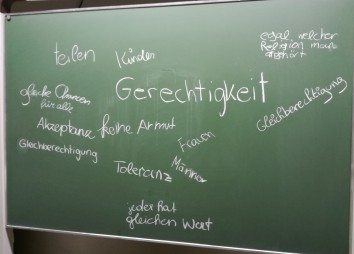 teilen
Kinder
egal welcher
Religion man
angehört
gleiche Chancen
für alle
Gerechtigkeit
Gleichberechtigung
Akzeptanz
keine Armut
Frauen
Gleichberechtigung
Toleranz
Männer
jeder hat
gleichen Wert